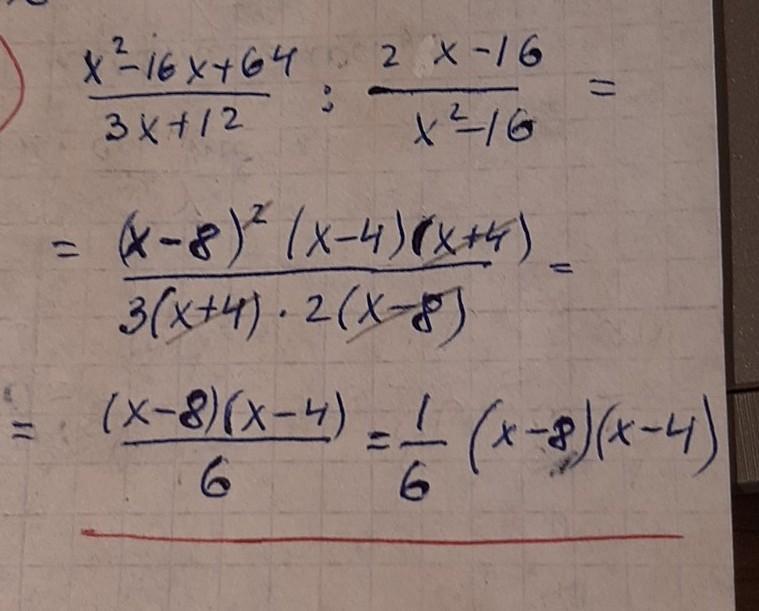 x²-16x+64 / 3x+12 : 2 x-16 / x²-16 =
= (x-8)² (x-4)(x+4) / 3(x+4) · 2(x-8) =
= (x-8)(x-4) / 6 = 1/6 (x-8)(x-4)